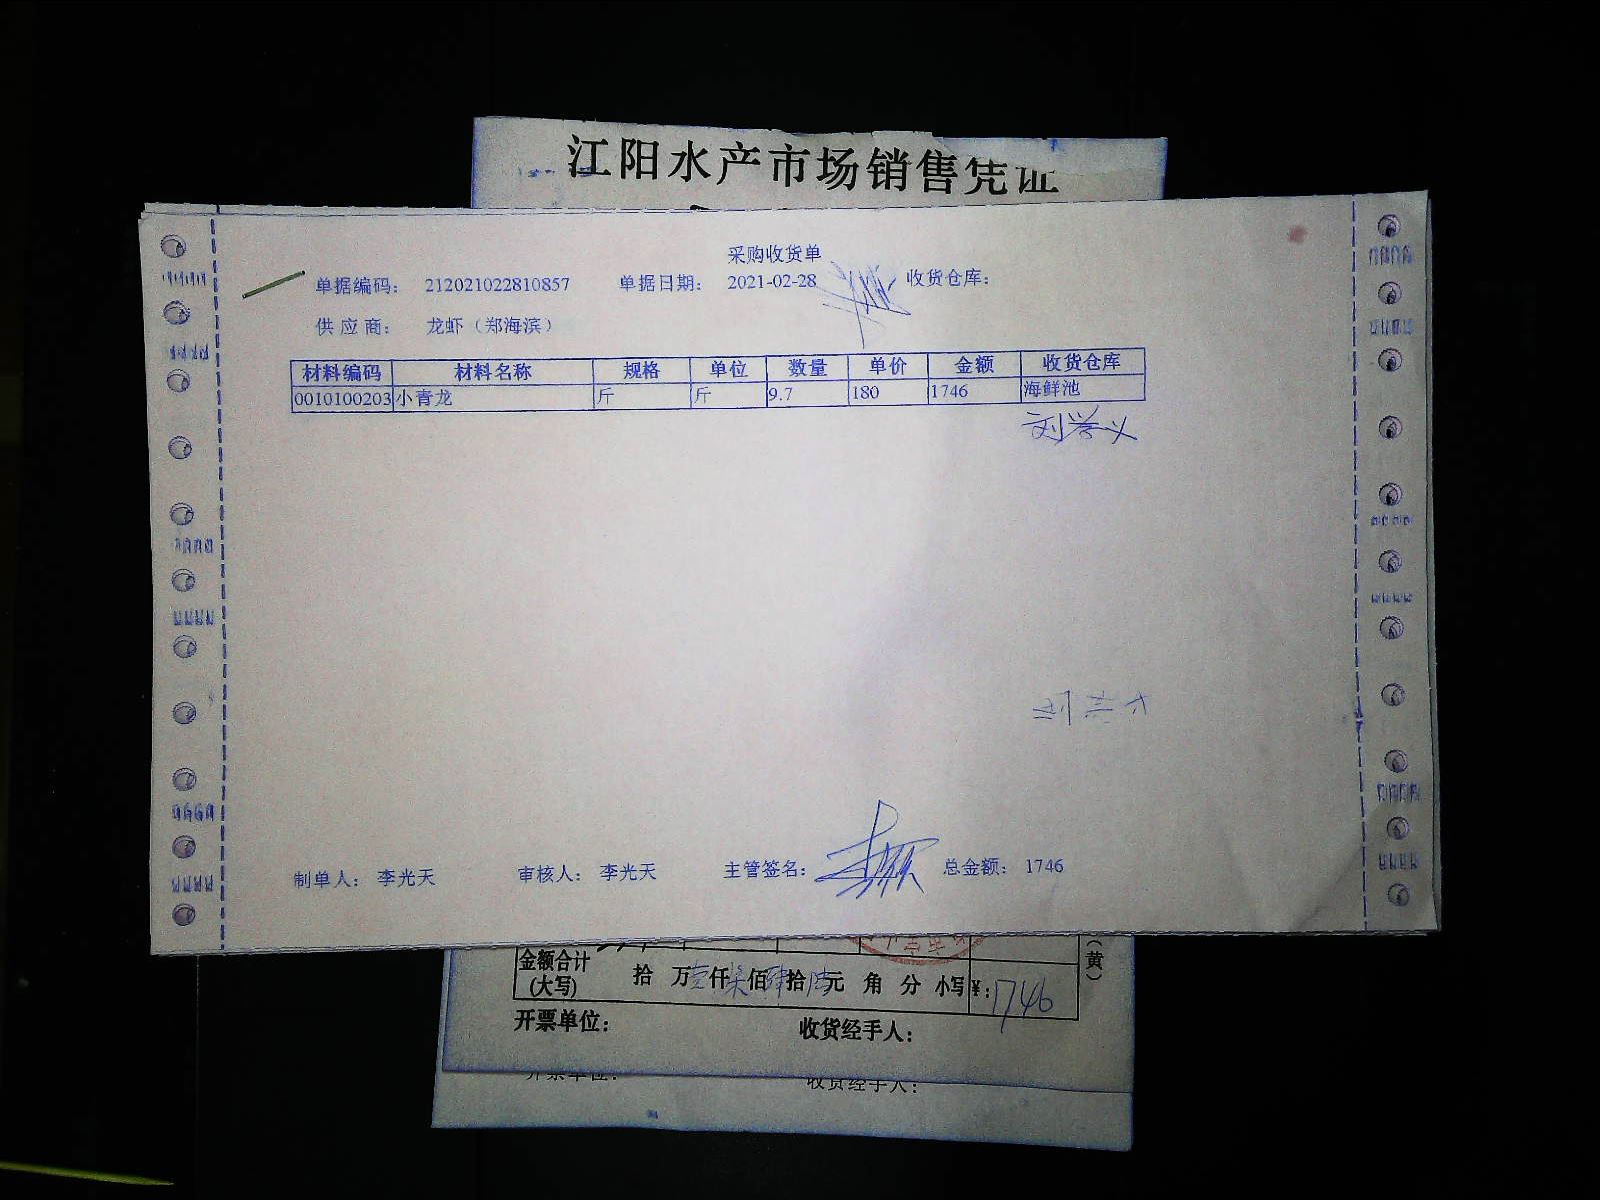 江阳水产市场销售凭证
采购收货单
单据编码： 212021022810857 单据日期： 2021-02-28 收货仓库：
供应商： 龙虾（郑海滨）
材料编码 材料名称 规格 单位 数量 单价 金额 收货仓库
0010100203 小青龙 斤 斤 9.7 180 1746 海鲜池
刘学义
制单人： 李光天 审核人： 李光天 主管签名： 总金额： 1746
金额合计 拾 万壹仟柒佰肆拾陆元 角 分 小写 ¥：1746
(大写)
（黄）
开票单位： 收货经手人：
开票单位： 收货经手人：